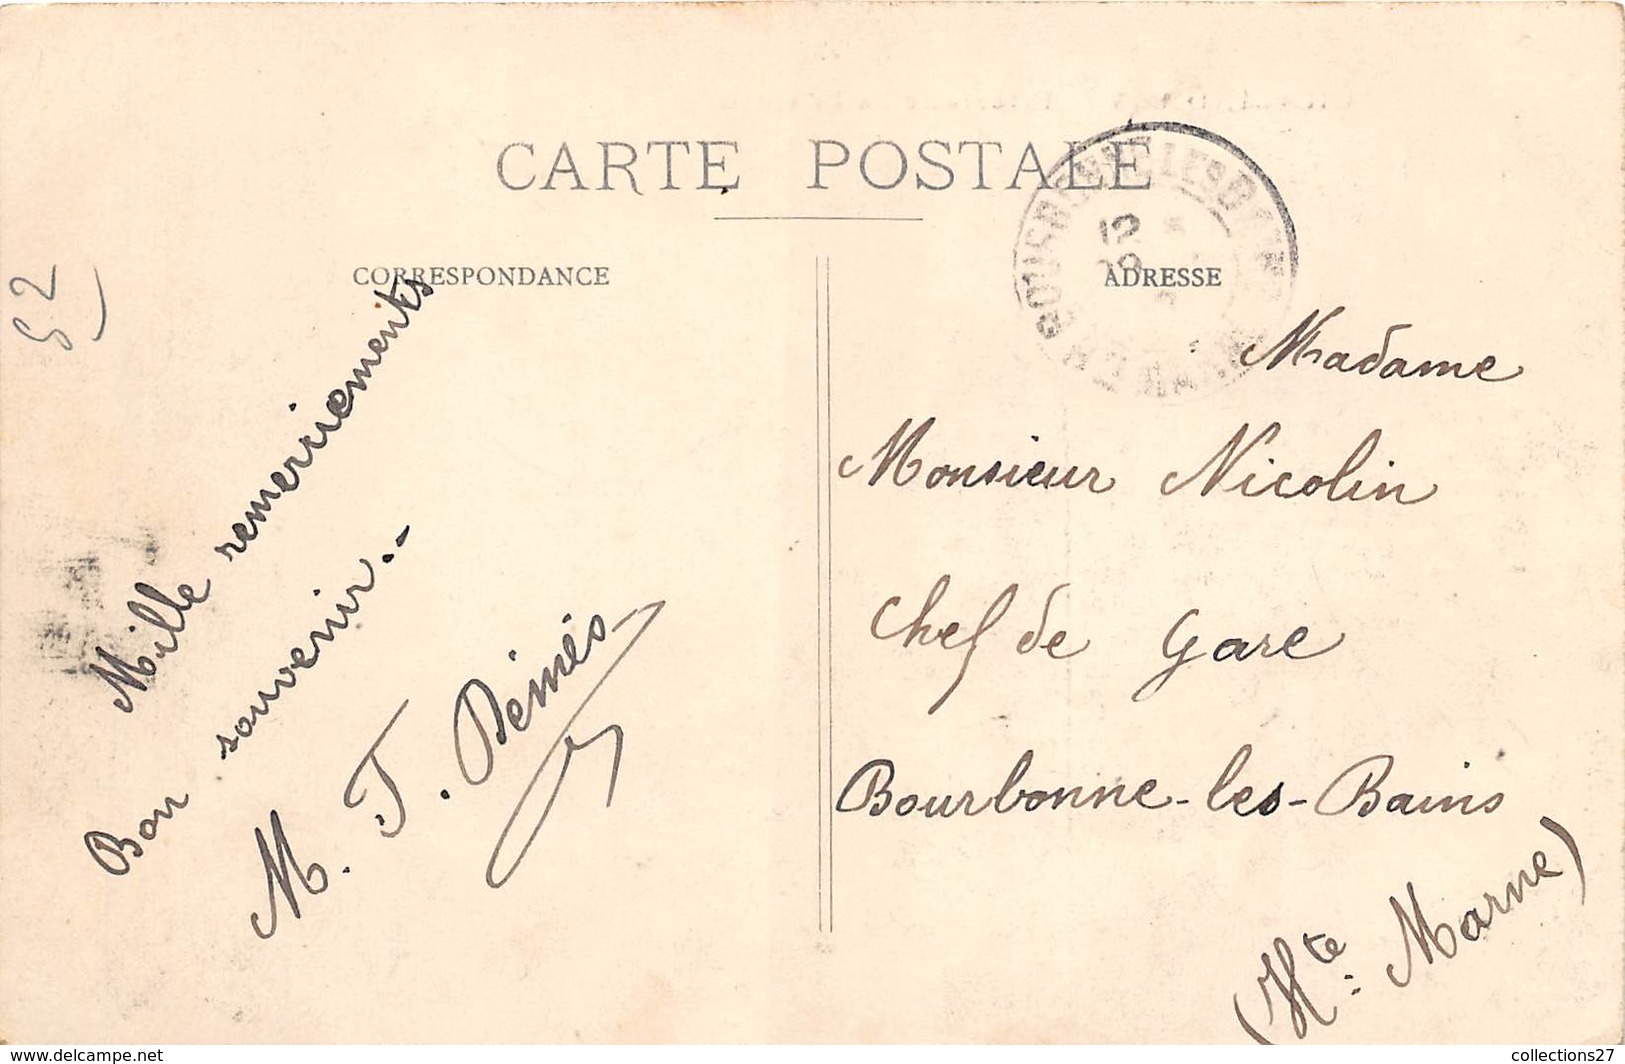 CARTE POSTALE
CORRESPONDANCE
ADRESSE
52
Mille remerciements
Bon souvenir.-
M. T.
Madame
Monsieur Nicolin
Chef de gare
Bourbonne-les-Bains
(Hte: Marne)
www.delcampe.net
collections27